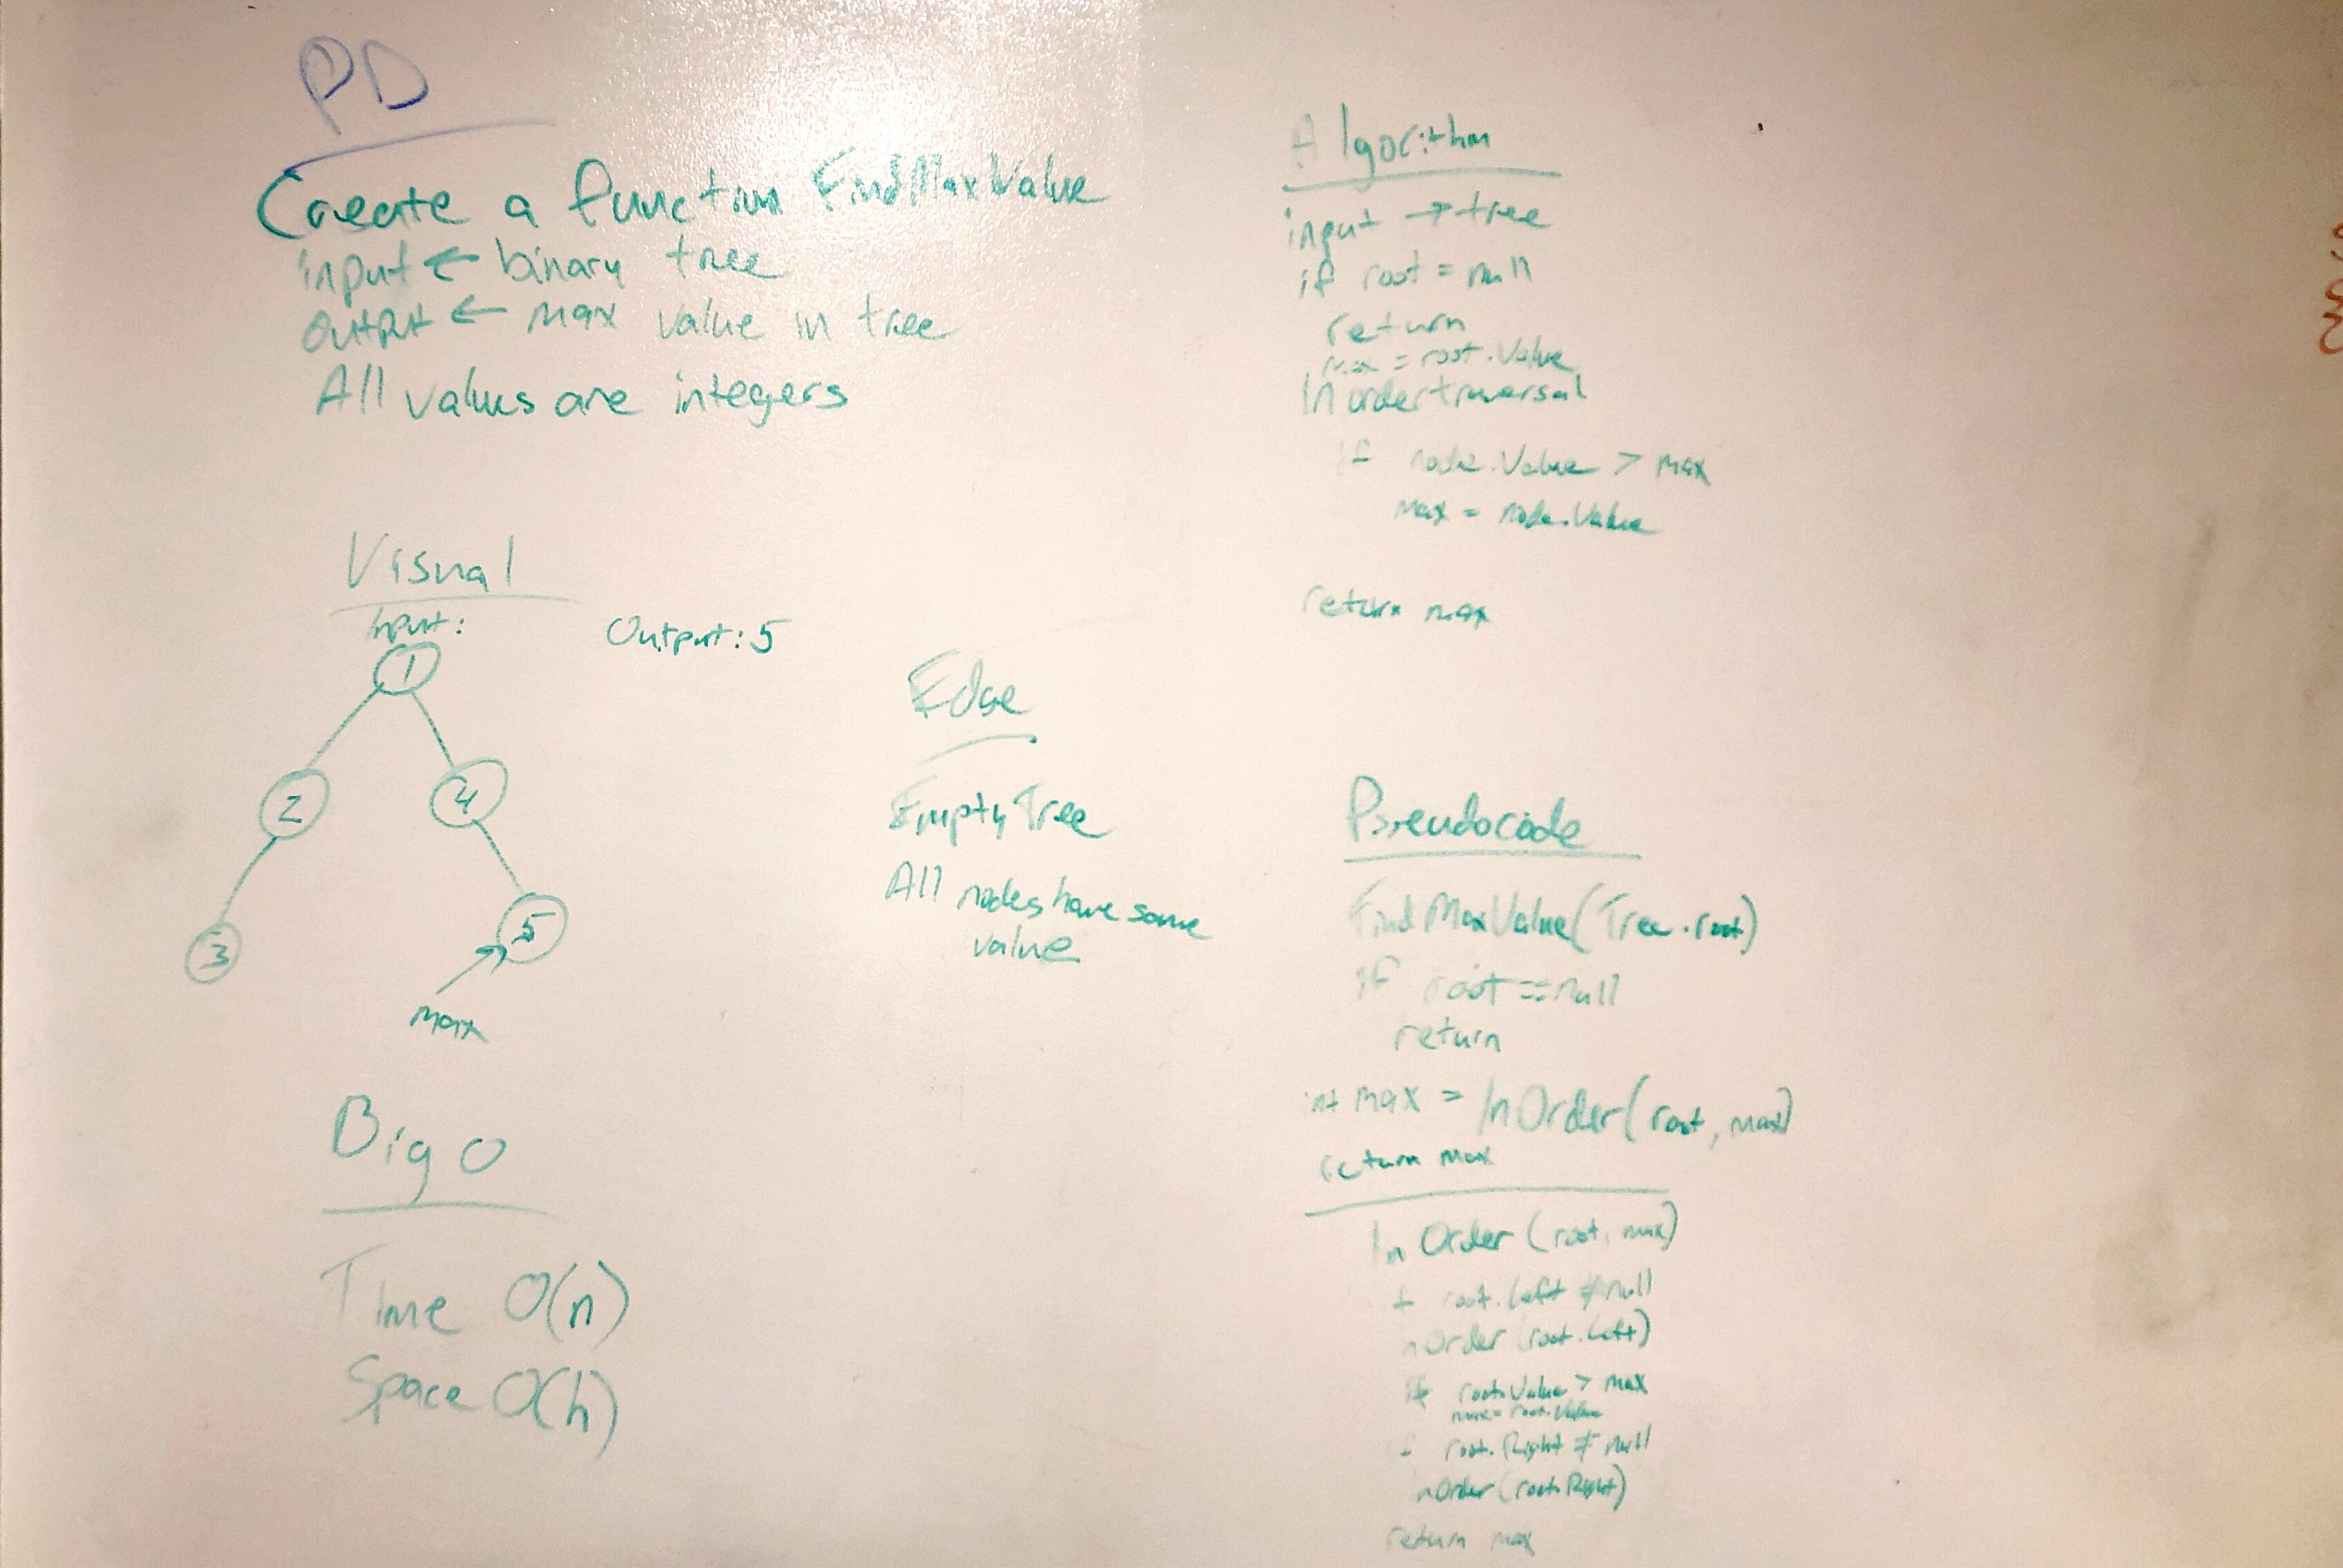 PD
Create a function FindMaxValue
input ← binary tree
output ← max value in tree
All values are integers
Visual
Input:
Output: 5
1
2
4
3
5
max
Big O
Time O(n)
Space O(h)
Edge
Empty Tree
All nodes have same
value
Algorithm
input → tree
if root = null
return
max = root.Value
Inordertraversal
if node.Value > max
max = node.Value
return max
Pseudocode
FindMaxValue(Tree.root)
if root == null
return
int max = InOrder(root, max)
return max
InOrder(root, max)
root.Left ≠ null
InOrder(root.Left)
if root.Value > max
max = root.Value
root.Right ≠ null
InOrder(root.Right)
return max